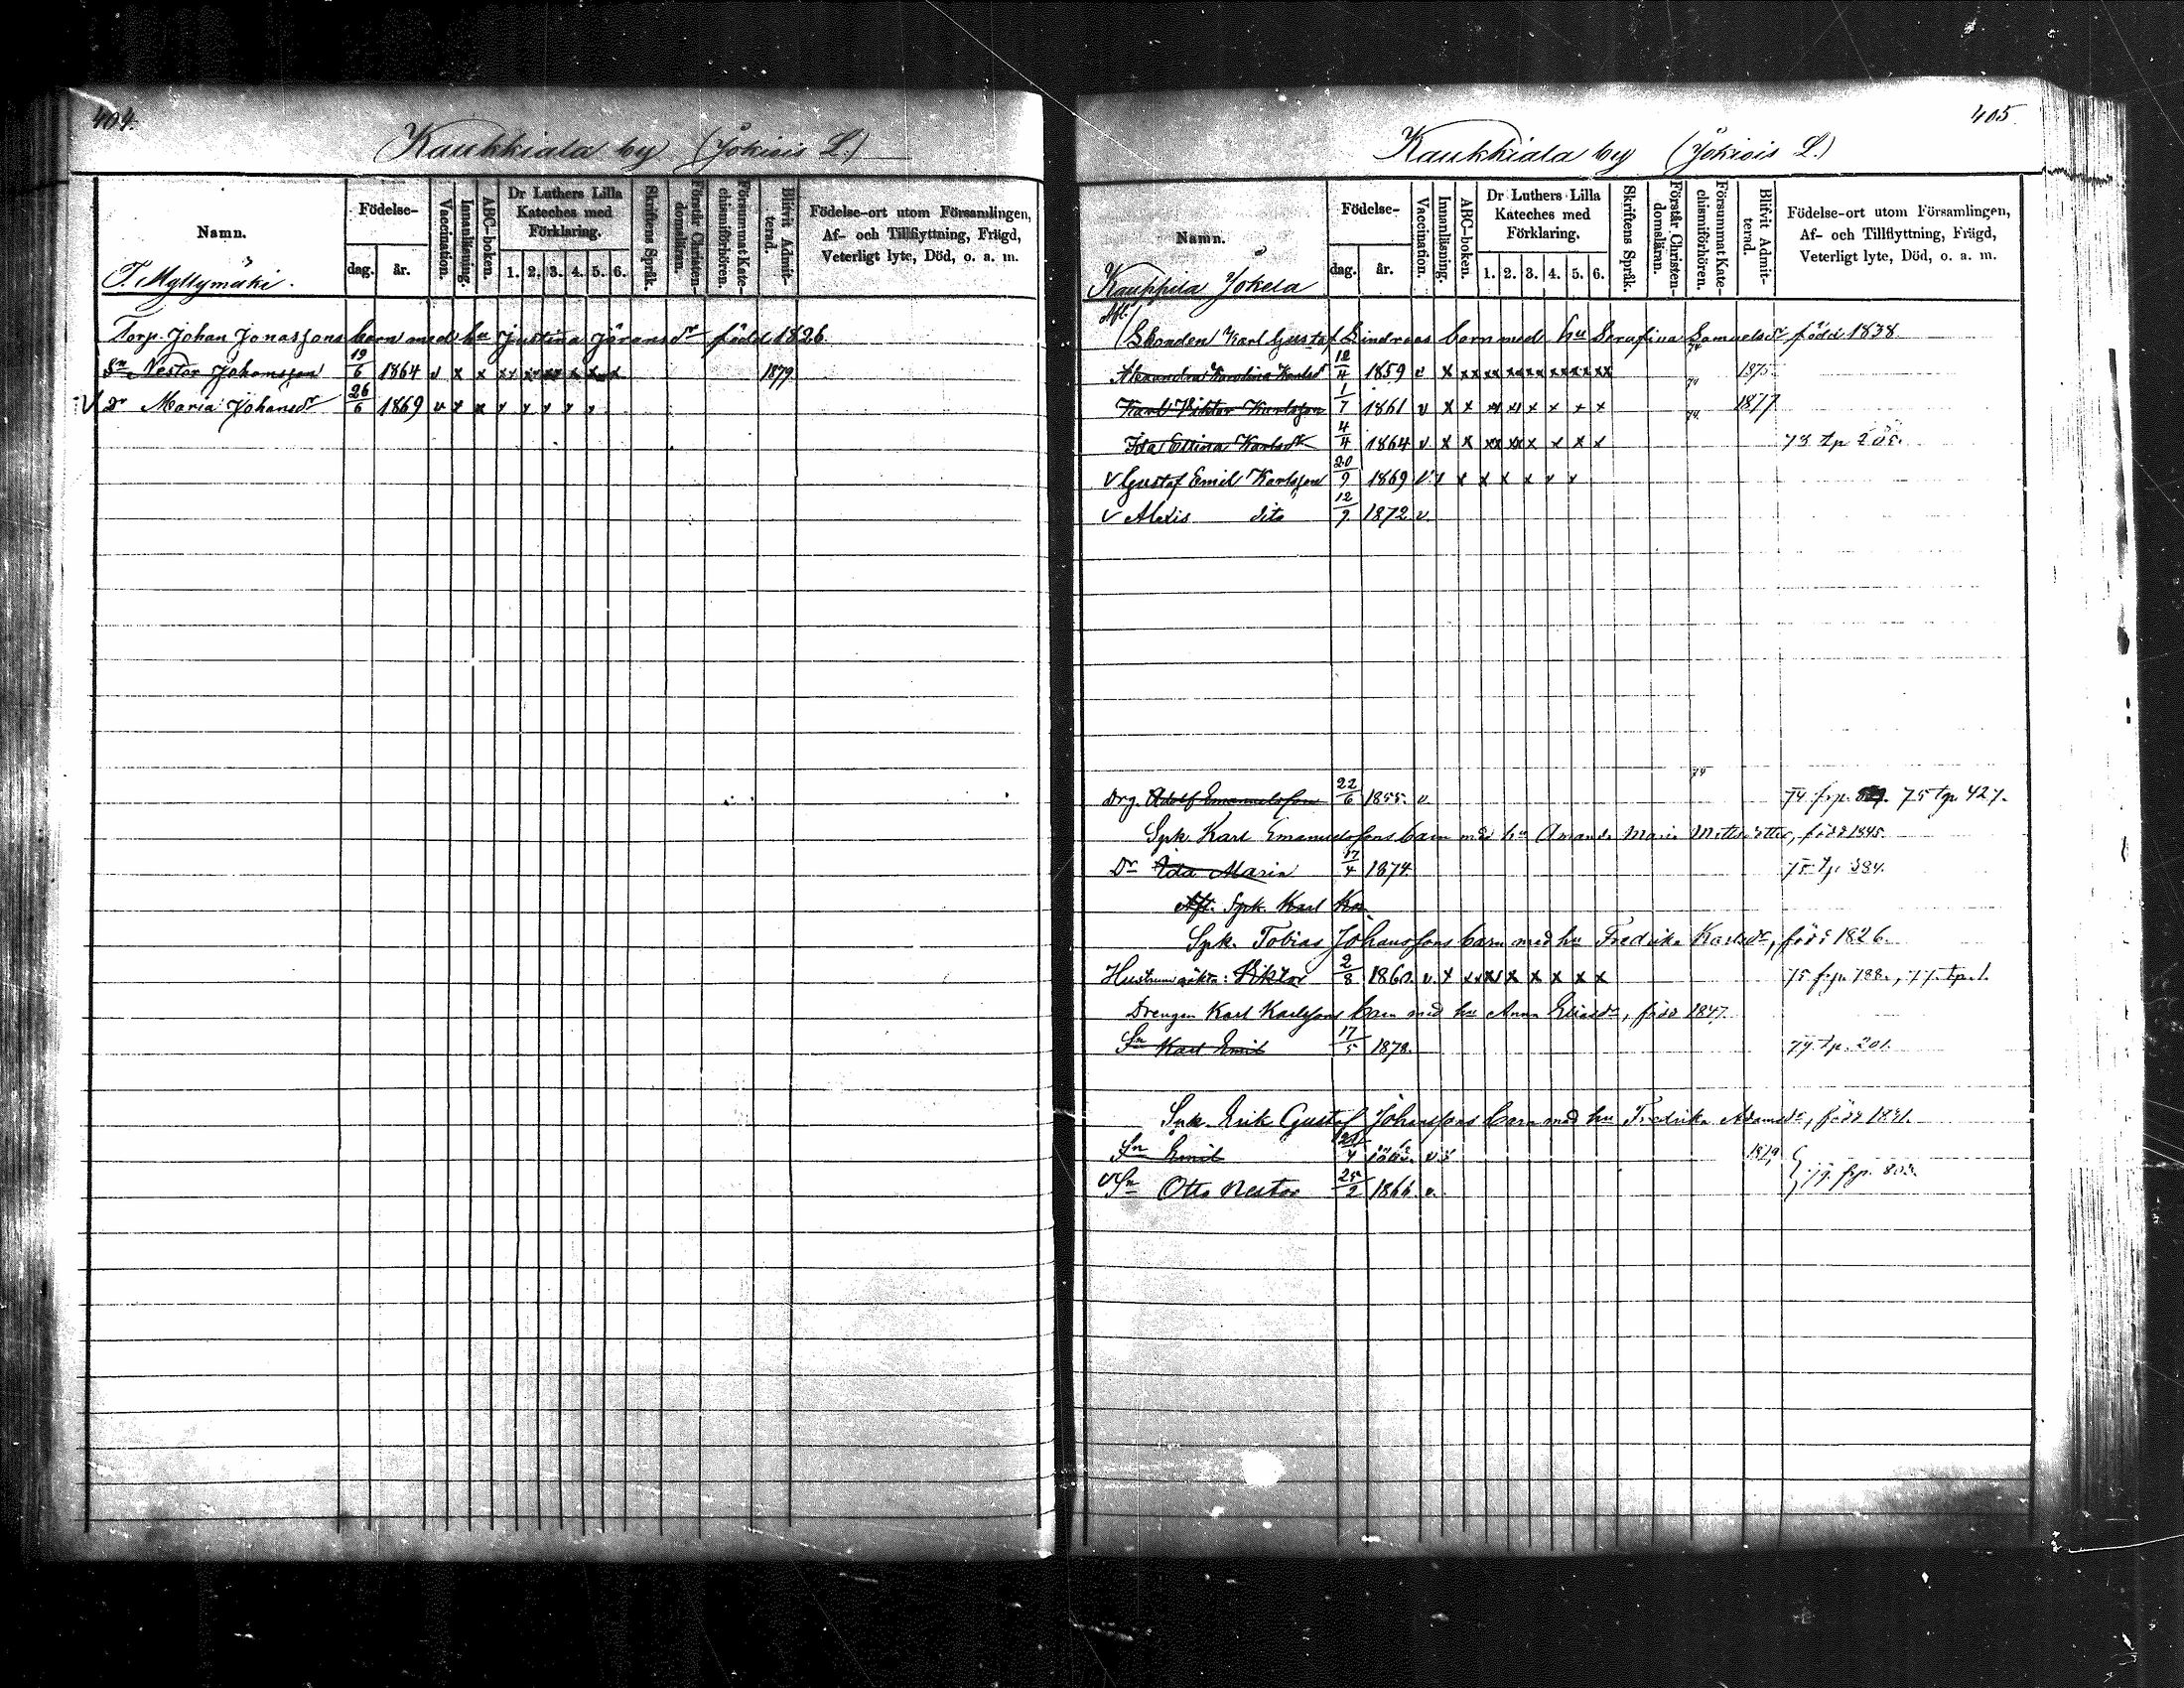 404.
Kaukkiala by (Jokiois L.)
Namn.
Födelse-
dag.
år.
Vaccination.
Innanläsning.
ABC-boken.
Dr Luthers Lilla Kateches med Förklaring.
1. 2. 3. 4. 5. 6.
Skriftens Språk.
Förstår Christen-domsläran.
Försummat Kate-chismiförhören.
Blifvit Admit-terad.
Födelse-ort utom Församlingen,
Af- och Tillflyttning, Frägd,
Veterligt lyte, Död, o. a. m.
T. Myllymäki.
Torp. Johan Jonassons barn med hu Justina Jöransdr född 1826.
Sn Nestor Johansson 19/6 1864 v x x xx xx xx x x x 1879
V Dr Maria Johansdr 26/6 1869 v x x x x x x x
405.
Kaukkiala by (Jokiois L.)
Namn.
Födelse-
dag.
år.
Vaccination.
Innanläsning.
ABC-boken.
Dr Luthers Lilla Kateches med Förklaring.
1. 2. 3. 4. 5. 6.
Skriftens Språk.
Förstår Christen-domsläran.
Försummat Kate-chismiförhören.
Blifvit Admit-terad.
Födelse-ort utom Församlingen,
Af- och Tillflyttning, Frägd,
Veterligt lyte, Död, o. a. m.
Kauppila Jokela
Afl. Karl Gustaf Lindroos barn med hu Serafina Samuelsdr född 1838
Alexandra Karolina Karlsdr 12/4 1859 v x xx xx xx xx xx xx xx 74 1875
Karl Viktor Karlsson 1/7 1861 v x x xx xx x x x x 74 1877
Ida Karlsdr 4/4 1864 v x x xx xx x x x x 74 78 tp 205.
V Gustaf Emil Karlsson 20/9 1869 v x x x x x x x
V Alexis dito 12/9 1872 v
Drg. Adolf Emanuelsson 22/6 1855. v. 74 74 frp. 75 tp. 427.
Spk. Karl Emanuelssons barn med hu Amanda Maria född 1845.
Dr Ida Maria 17/4 1874 75 tp. 284.
Aft. Spk. Karl
Spk. Tobias Johanssons barn med hu Fredrika Karlsdr, född 1826.
Hustruns oäkta: Viktor 2/8 1860. v. x xx xx x x x x x 75 frp. 188., 77. tp. 1.
Drengen Karl Karlssons barn med hu Anna Eliasdr, född 1847.
Sn Karl Emil 17/5 1878. 79 tp. 201.
Spk. Erik Gustaf Johanssons barn med hu Fredrika Adamsdr, född
Sn Emil 4 v x 1879
V Sn Otto Nestor 25/2 1866 v. 79. frp. 803.